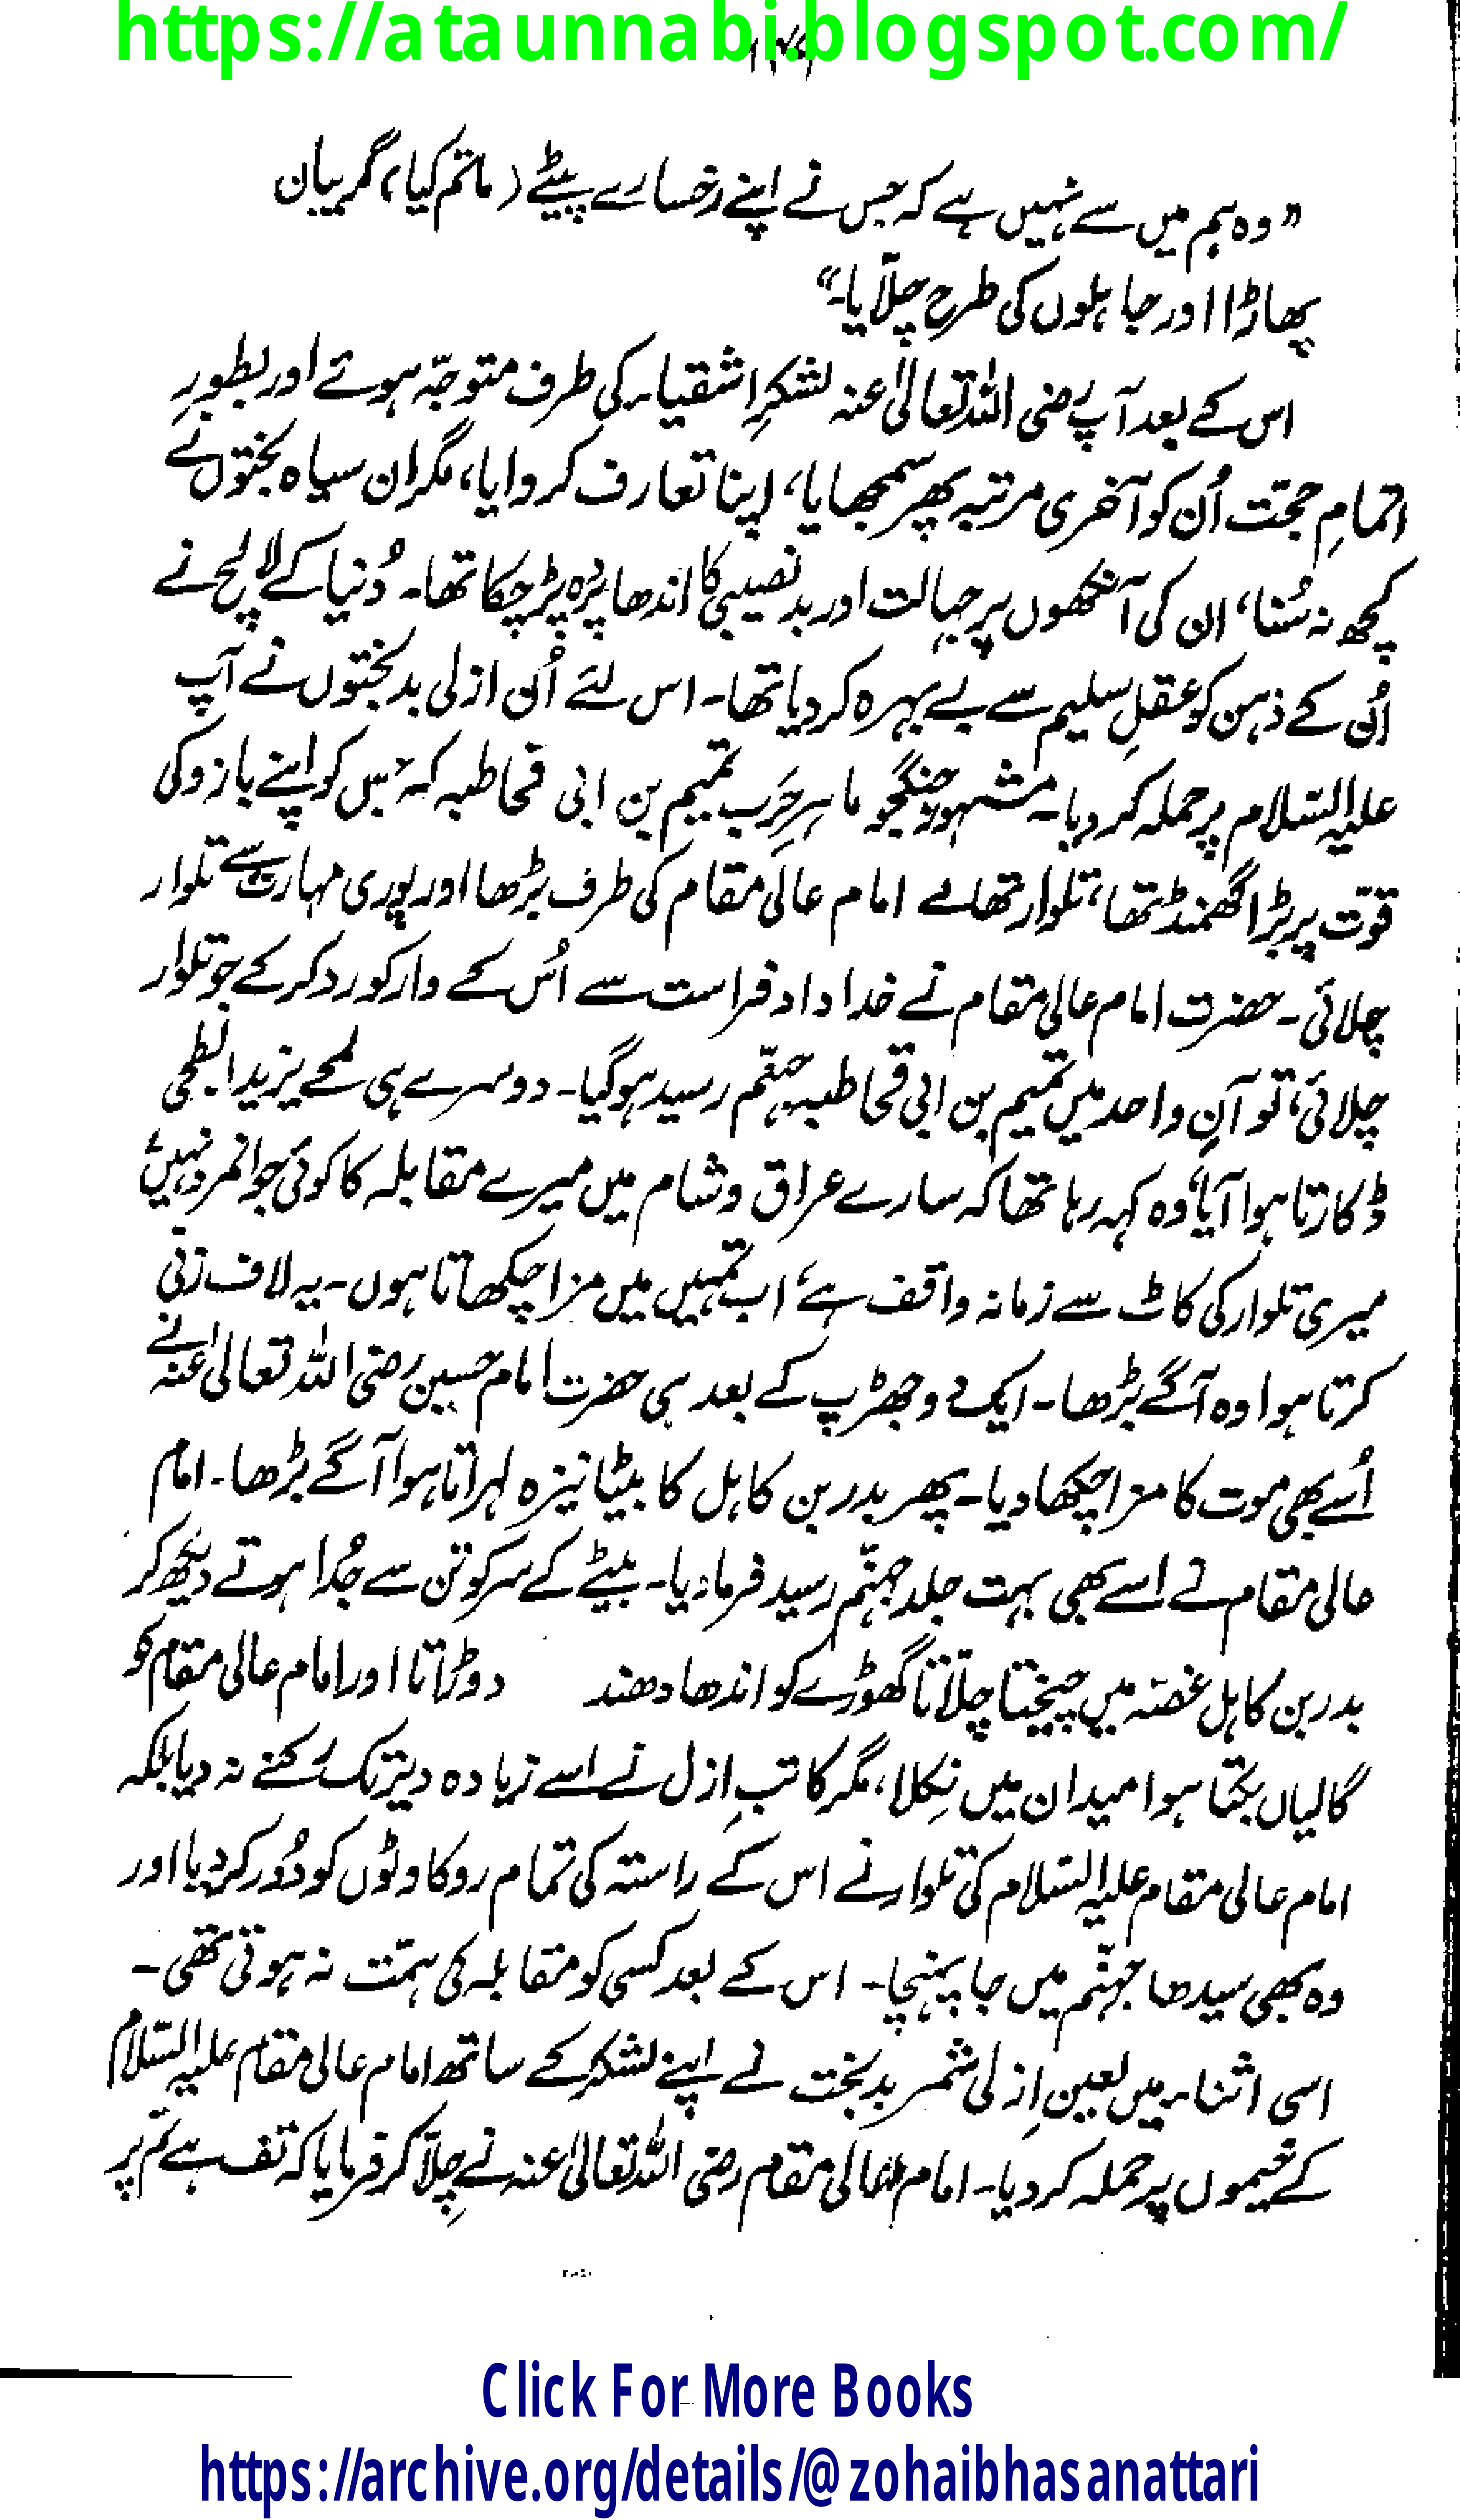 https://ataunnabi.blogspot.com/
”وہ ہم میں سے نہیں ہے کہ جس نے اپنے رخسارے پیٹے (ماتم کیا) گریبان
پھاڑا اور جاہلوں کی طرح چلّایا۔“
اس کے بعد آپ رضی اللہ تعالیٰ عنہ لشکرِ اشقیاء کی طرف متوجّہ ہوئے اور بطورِ
اتمامِ حجّت اُن کو آخری مرتبہ پھر سمجھایا، اپنا تعارف کروایا، مگر ان سیاہ بختوں نے
کچھ نہ سُنا، ان کی آنکھوں پر جہالت اور بدنصیبی کا اندھا پردہ پڑ چکا تھا۔ دُنیا کے لالچ نے
اُن کے ذہن کو عقلِ سلیم سے بے بہرہ کر دیا تھا۔ اس لئے اُن ازلی بدبختوں نے آپ
علیہ السّلام پر حملہ کر دیا۔ مشہور جنگجو ماہرِ حَرب تمیم بن ابی قحاطبہ کہ جس کو اپنے بازو کی
قوّت پر بڑا گھمنڈ تھا، تلوار تھامے امام عالی مقام کی طرف بڑھا اور پوری مہارت سے تلوار
چلائی۔ حضرت امام عالی مقام نے خداداد فراست سے اُس کے وار کو رد کر کے جو تلوار
چلائی، تو آنِ واحد میں تمیم بن ابی قحاطبہ جہنّم رسید ہو گیا۔ دوسرے ہی لمحے یزید ابطحی
ڈکارتا ہوا آیا، وہ کہہ رہا تھا کہ سارے عراق و شام میں میرے مقابلہ کا کوئی جوانمرد نہیں،
میری تلوار کی کاٹ سے زمانہ واقف ہے، اب تمہیں میں مزا چکھاتا ہوں۔ یہ لاف زنی
کرتا ہوا وہ آگے بڑھا۔ ایک دو جھڑپ کے بعد ہی حضرت امام حسین رضی اللہ تعالیٰ عنہ نے
اُسے بھی موت کا مزا چکھا دیا۔ پھر بدر بن کاہل کا بیٹا نیزہ لہراتا ہوا آگے بڑھا۔ امام
عالی مقام نے اسے بھی بہت جلد جہنّم رسید فرما دیا۔ بیٹے کے سر کو تن سے جُدا ہوتے دیکھ کر
بدر بن کاہل غصّہ میں چیختا چلّاتا گھوڑے کو اندھا دھند دوڑاتا اور امام عالی مقام کو
گالیاں بکتا ہوا میدان میں نِکلا، مگر کاتبِ ازل نے اسے زیادہ دیر تک رُکنے نہ دیا بلکہ
امام عالی مقام علیہ السّلام کی تلوار نے اس کے راستہ کی تمام روکاوٹوں کو دُور کر دیا اور
وہ بھی سیدھا جہنّم میں جا پہنچا۔ اس کے بعد کسی کو مقابلہ کی ہمّت نہ ہوتی تھی۔
اسی اثناء میں لعینِ ازلی شمر بدبخت نے اپنے لشکر کے ساتھ امام عالی مقام علیہ السّلام
کے خیموں پر حملہ کر دیا۔ امام عالی مقام رضی اللہ تعالیٰ عنہ نے چِلّا کر فرمایا کہ تف ہے تم پر
Click For More Books
https://archive.org/details/@zohaibhasanattari